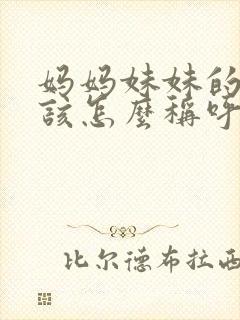 妈妈妹妹的
該怎麼稱呼
比尔德布拉西